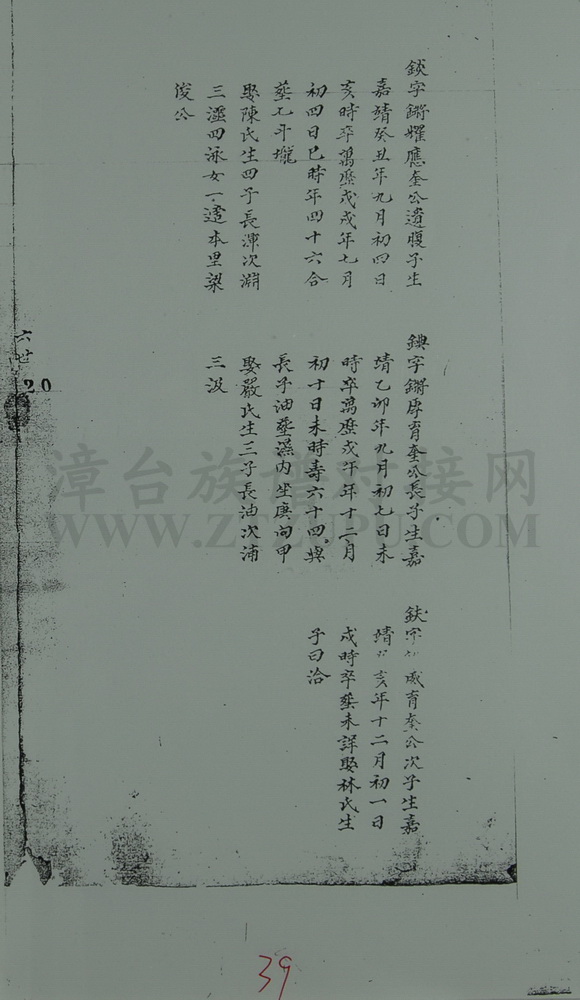 鋏字鏘燿應奎公遺腹子生
嘉靖癸丑年九月初四日
亥時卒萬曆戊戌年七月
初四日巳時年四十六合
塟七斗壠
娶陳氏生四子長渾次淵
三澐四泳女一適本里梁
俊公
鎮字鏘厚育奎公長子生嘉
靖乙卯年九月初七日未
時卒萬曆戊午年十二月
初十日未時壽六十四與
長子油塟濕內坐庚向甲
娶嚴氏生三子長油次浦
三汲
鈇字 威育奎公次子生嘉
靖 亥年十二月初一日
戌時卒塟未詳娶林氏生
子曰洽
六世
20
漳台族谱对接网
WWW.ZTZUPU.COM
39